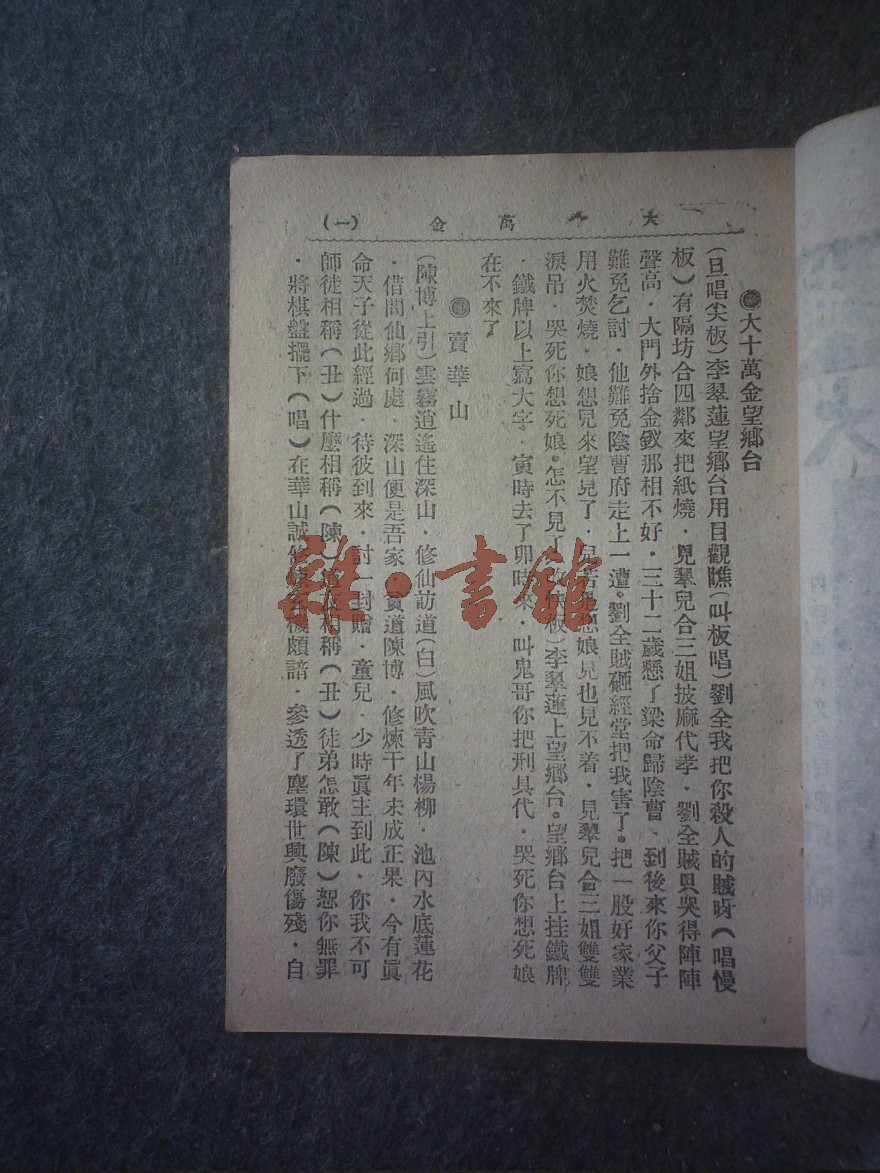 大十萬金 (一)
大十萬金望鄉台
(旦唱尖板)李翠蓮望鄉台用目觀瞧(叫板唱)劉全我把你殺人的賊呀(唱慢
板)有隔坊合四鄰來把紙燒·見翠兒合三姐披麻代孝·劉全賊只哭得陣陣
聲高·大門外捨金釵那相不好·三十二歲懸了梁命歸陰曹·到後來你父子
難免乞討·他難免陰曹府走上一遭。劉全賊砸經堂把我害了。把一股好家業
用火焚燒·娘想兒來望見了·兒若是想娘見也見不着·見翠兒合三姐雙雙
淚吊·哭死你想死娘。怎不見了 板)李翠蓮上望鄉台。望鄉台上挂鐵牌
·鐵牌以上寫大字·寅時去了卯時來·叫鬼哥你把刑具代·哭死你想死娘
在不來了
賣華山
(陳博上引)雲霧逍遙住深山·修仙訪道(白)風吹青山楊柳·池內水底蓮花
·借問仙鄉何處·深山便是吾家·貧道陳博·修煉千年未成正果·今有眞
命天子從此經過·待彼到來·討一封贈·童兒·少時眞主到此·你我不可
師徒相稱(丑)什麼相稱(陳) 相稱(丑)徒弟怎敢(陳)恕你無罪
·將棋盤擺下(唱)在華山誠 機頗諳·參透了塵環世興廢傷殘·自
雜·書館